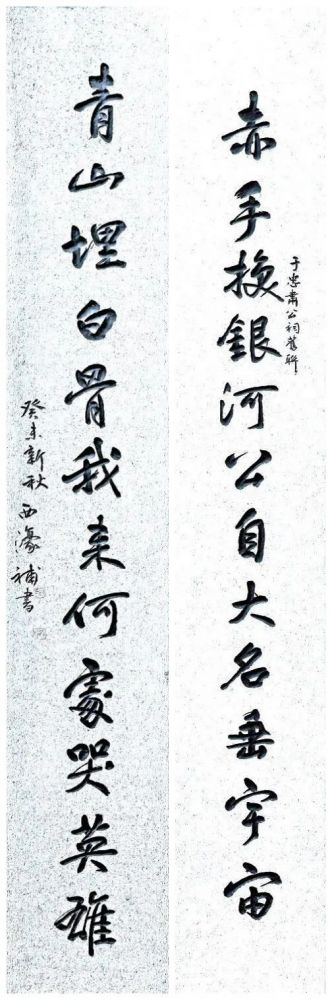 赤手挽銀河公自大名垂宇宙
于忠肅公祠舊聯
青山埋白骨我来何處哭英雄
癸未新秋西濠補書